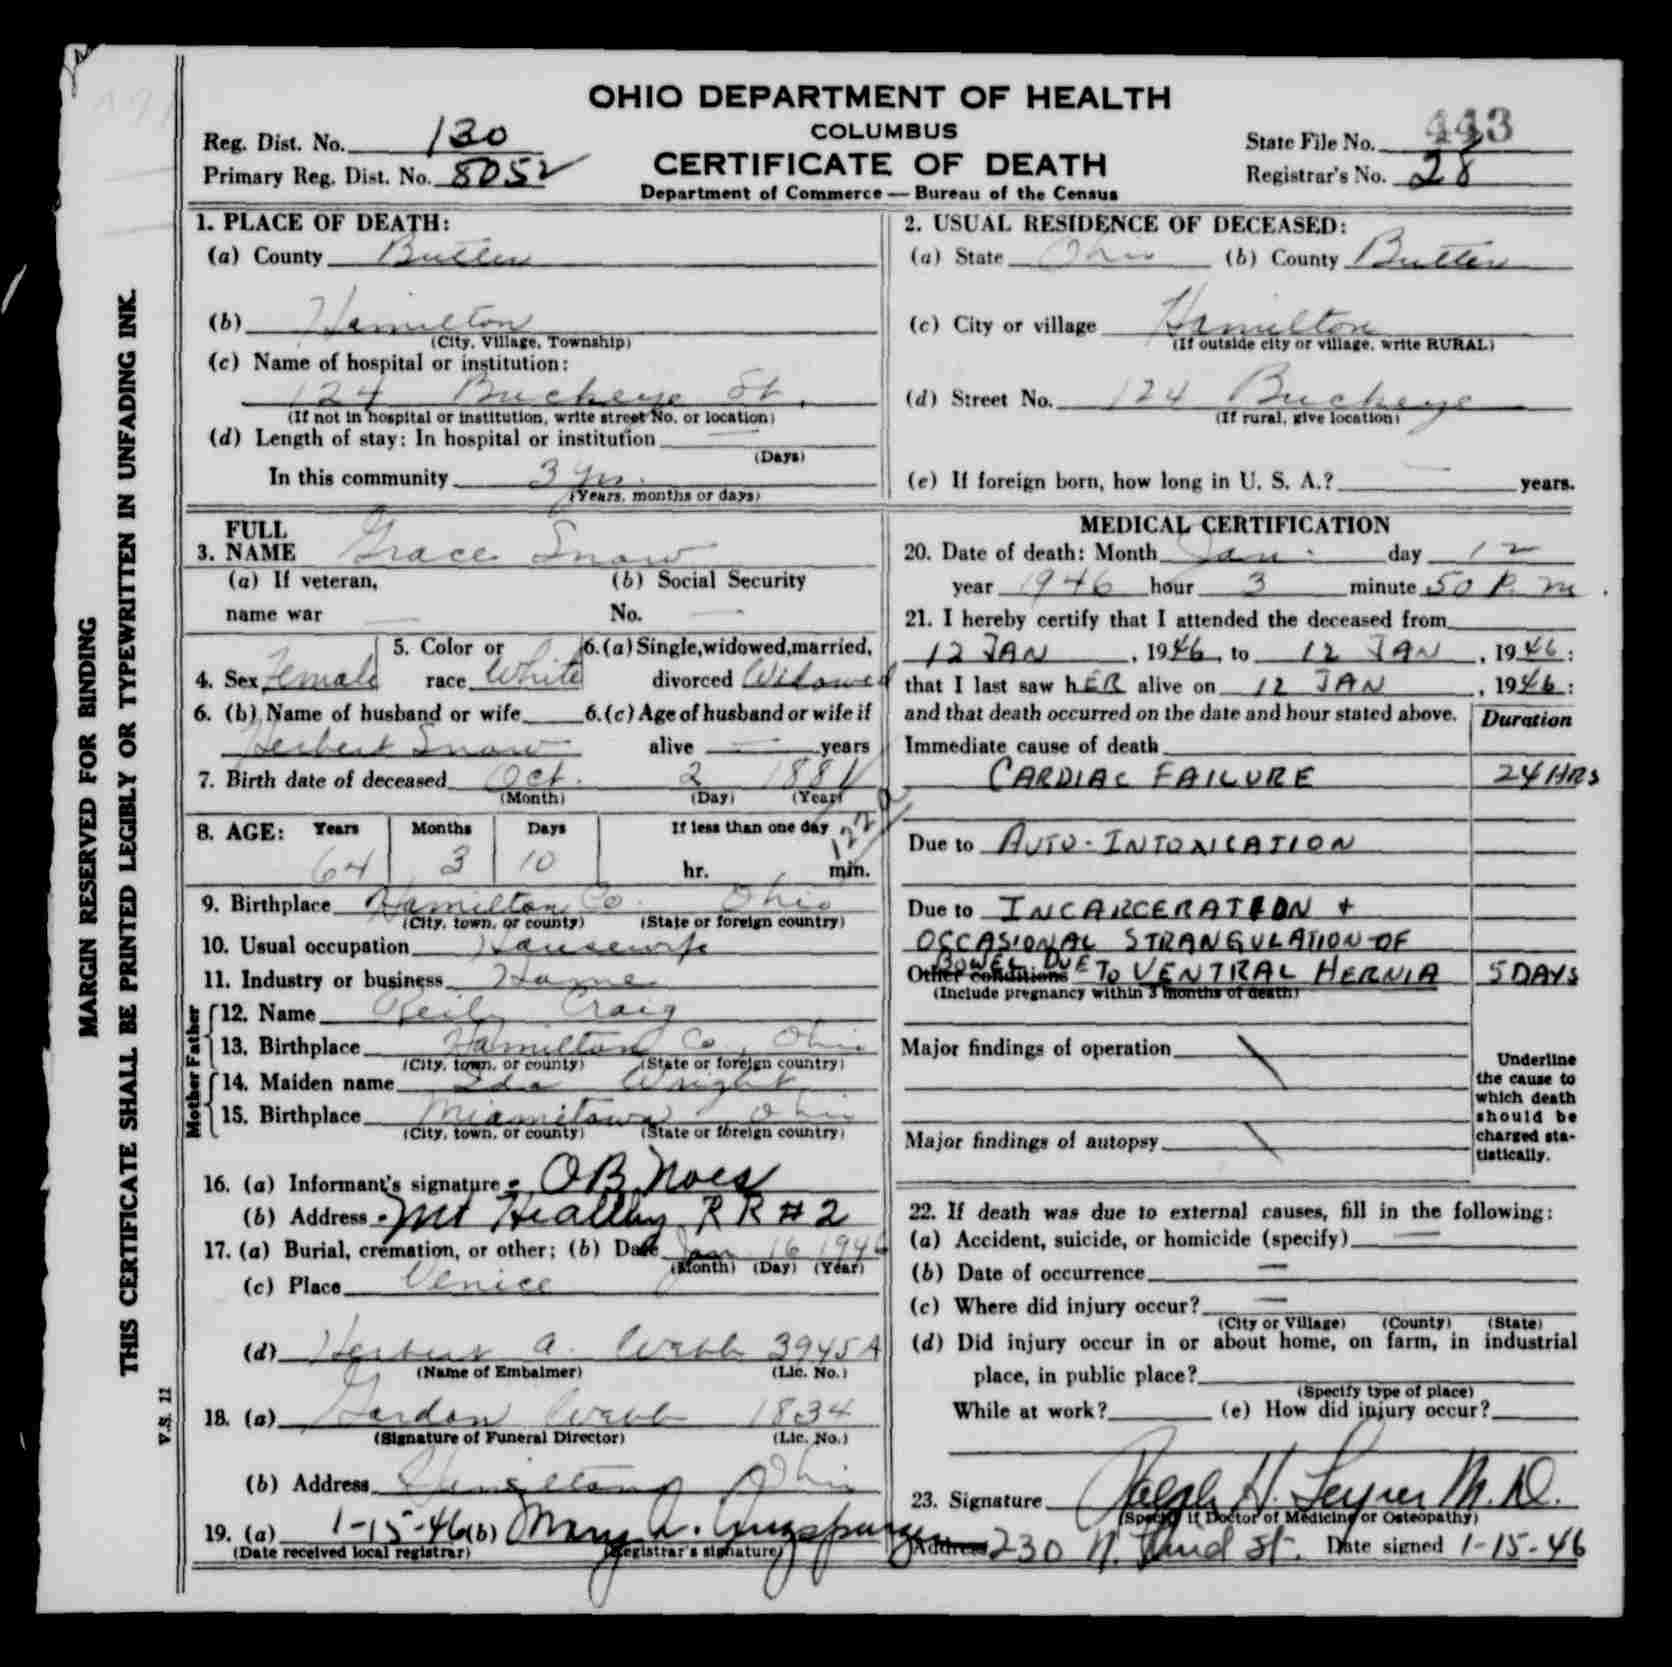 OHIO DEPARTMENT OF HEALTH
COLUMBUS
CERTIFICATE OF DEATH
Department of Commerce — Bureau of the Census
Reg. Dist. No. 130
Primary Reg. Dist. No. 8052
State File No. 443
Registrar's No. 28
MARGIN RESERVED FOR BINDING
THIS CERTIFICATE SHALL BE PRINTED LEGIBLY OR TYPEWRITTEN IN UNFADING INK.
V.S. 11
1. PLACE OF DEATH:
(a) County Butler
(b) Hamilton
(City, Village, Township)
(c) Name of hospital or institution:
124 Buckeye St.
(If not in hospital or institution, write street No. or location)
(d) Length of stay: In hospital or institution —
(Days)
In this community 3 yrs.
(Years, months or days)
2. USUAL RESIDENCE OF DECEASED:
(a) State Ohio (b) County Butler
(c) City or village Hamilton
(If outside city or village, write RURAL)
(d) Street No. 124 Buckeye
(If rural, give location)
(e) If foreign born, how long in U. S. A.? — years.
FULL
3. NAME Grace Snow
(a) If veteran, (b) Social Security
name war — No. —
5. Color or 6.(a) Single, widowed, married,
4. Sex Female race White divorced Widowed
6. (b) Name of husband or wife 6.(c) Age of husband or wife if
Herbert Snow alive — years
7. Birth date of deceased Oct. 2 1881
(Month) (Day) (Year)
8. AGE: Years Months Days If less than one day
64 3 10 hr. min.
9. Birthplace Hamilton Co. Ohio
(City, town, or county) (State or foreign country)
10. Usual occupation Housewife
11. Industry or business Home
Father
12. Name Reily Craig
13. Birthplace Hamilton Co. Ohio
(City, town, or county) (State or foreign country)
Mother
14. Maiden name Ida Wright
15. Birthplace Miamitown Ohio
(City, town, or county) (State or foreign country)
16. (a) Informant's signature O B Noes
(b) Address Mt Healthy RR #2
17. (a) Burial, cremation, or other; (b) Date Jan 16 1946
(Month) (Day) (Year)
(c) Place Venice
(d) Herbert A. Webb 3945A
(Name of Embalmer) (Lic. No.)
18. (a) Gordon Webb 1834
(Signature of Funeral Director) (Lic. No.)
(b) Address Hamilton Ohio
19. (a) 1-15-46 (b) Mary A. Augspurger
(Date received local registrar) (Registrar's signature)
MEDICAL CERTIFICATION
20. Date of death: Month Jan. day 12
year 1946 hour 3 minute 50 P. m.
21. I hereby certify that I attended the deceased from
12 JAN, 1946, to 12 JAN, 1946:
that I last saw hER alive on 12 JAN, 1946:
and that death occurred on the date and hour stated above. Duration
Immediate cause of death
CARDIAC FAILURE 24 HRS
Due to AUTO-INTOXICATION
Due to INCARCERATION +
OCCASIONAL STRANGULATION OF
BOWEL DUE TO VENTRAL HERNIA 5 DAYS
Other conditions
(Include pregnancy within 3 months of death)
Major findings of operation
Major findings of autopsy
Underline
the cause to
which death
should be
charged sta-
tistically.
22. If death was due to external causes, fill in the following:
(a) Accident, suicide, or homicide (specify) —
(b) Date of occurrence —
(c) Where did injury occur? —
(City or Village) (County) (State)
(d) Did injury occur in or about home, on farm, in industrial
place, in public place?
(Specify type of place)
While at work? (e) How did injury occur?
23. Signature Ralph H. M.D.
(Specify if Doctor of Medicine or Osteopathy)
Address 230 N. Third St. Date signed 1-15-46